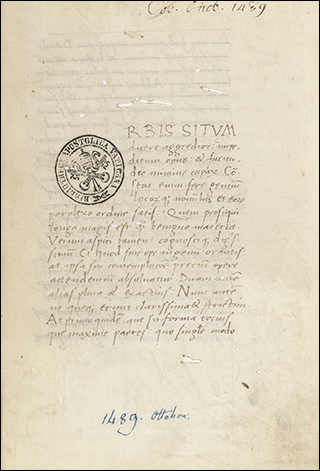 Cod. Ottob. 1489
BIBLIOTHECA APOSTOLICA VATICANA
RBIS SITVM
dicere aggredior: impe
ditum opus: & facun
die minime capax Cō
stat enim fere gentiū
locorqȝ nominibus et eorȝ
perplexo ordine satis. Quem prosequi
longa magis est qȝ benigna materia.
Verum aspici tamen cognosciqȝ dignis
simū. Et quod sine ope ingenii orantis
at ipsa sui contemplatione precium opere
attendentiū absoluat. Dicam autem
alias plura & exactius. Nunc autem
ut queqȝ erunt clarissima & strictim
At primo quidem que sit forma totius
que maxime partes: quo single modo
1489. Ottobon.